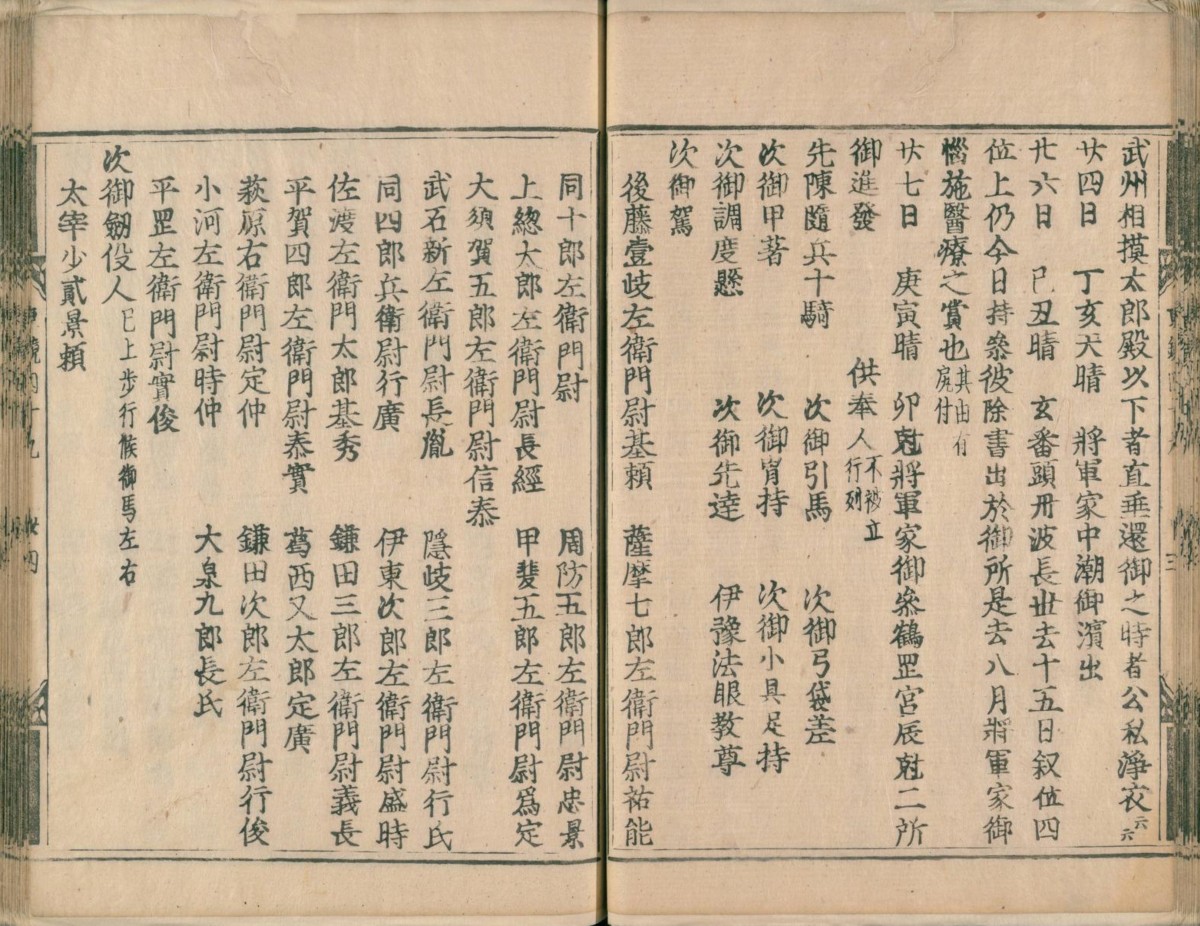 武州相摸太郎殿以下者直垂還御之時者公私淨衣云云
廿四日 丁亥天晴 將軍家中潮御濱出
廿六日 己丑晴 玄番頭丹波長世去十五日叙位四
位上仍今日持參彼除書出於御所是去八月將軍家御
惱施醫療之賞也其由有尻付
廿七日 庚寅晴 卯尅將軍家御參鶴罡宮辰尅二所
御進發 供奉人不被立行列
先陳隨兵十騎 次御引馬 次御弓袋差
次御甲著 次御冑持 次御小具足持
次御調度懸 次御先達 伊豫法眼教尊
次御駕
後藤壹岐左衛門尉基頼 薩摩七郎左衛門尉祐能
同十郎左衛門尉 周防五郎左衛門尉忠景
上總太郎左衛門尉長經 甲斐五郎左衛門尉爲定
大須賀五郎左衛門尉信泰
武石新左衛門尉長胤 隱岐三郎左衛門尉行氏
同四郎兵衛尉行廣 伊東次郎左衛門尉盛時
佐渡左衛門太郎基秀 鎌田三郎左衛門尉義長
平賀四郎左衛門尉泰實 葛西又太郎定廣
萩原右衛門尉定仲 鎌田次郎左衛門尉行俊
小河左衛門尉時仲 大泉九郎長氏
平罡左衛門尉實俊
次御劔役人已上步行候御馬左右
太宰少貳景頼